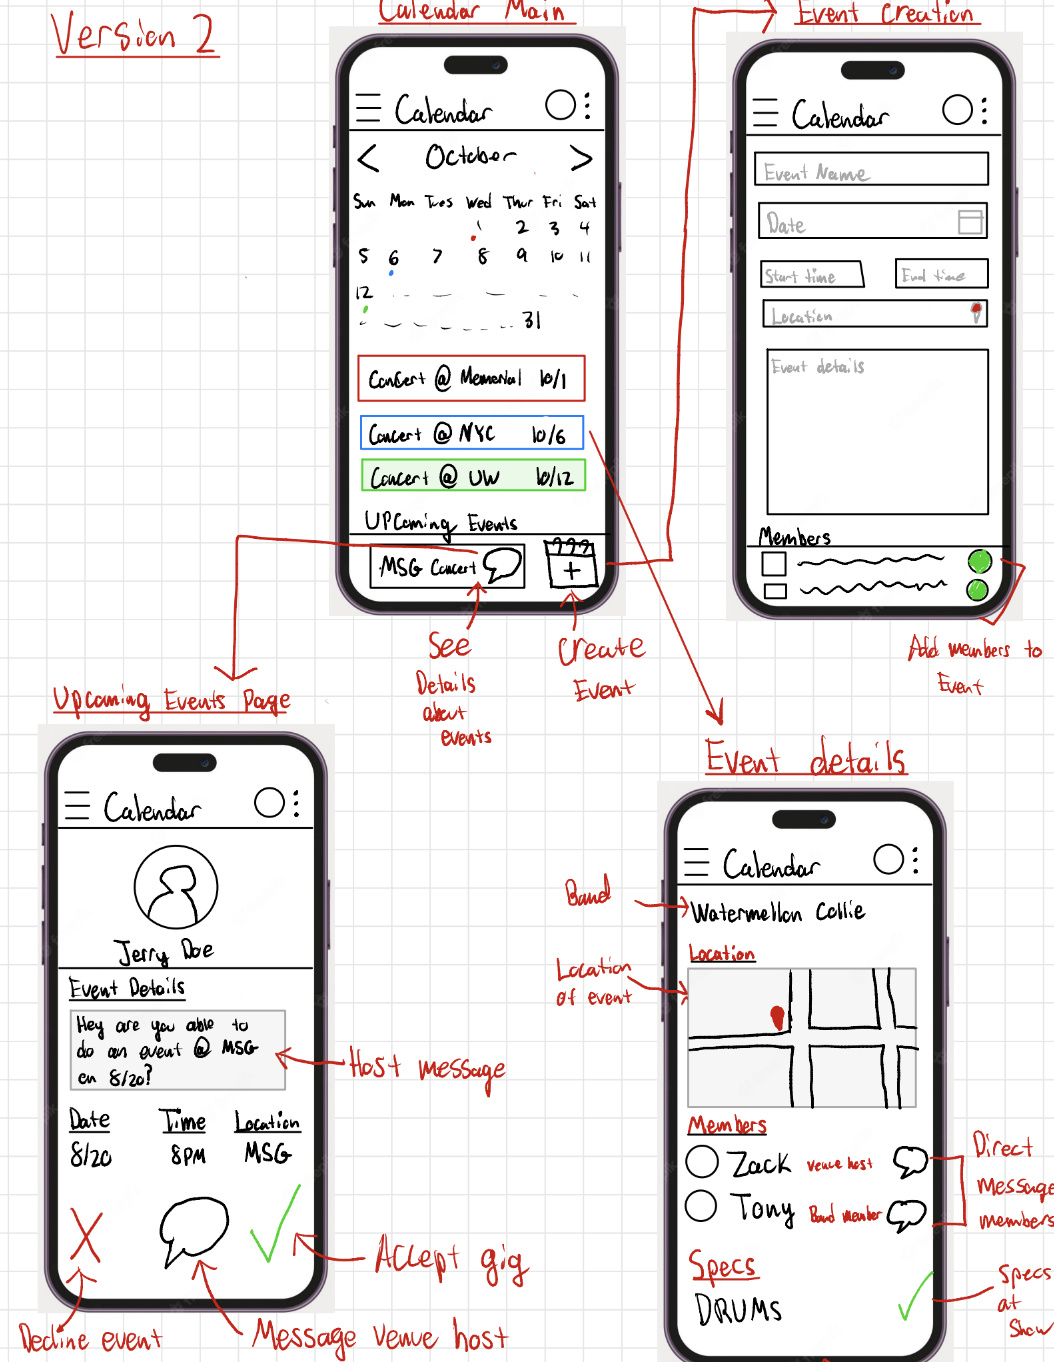 Version 2
Calendar Main
Calendar
October
Sun Mon Tues Wed Thur Fri Sat
1 2 3 4
5 6 7 8 9 10 11
12
31
Concert @ Memorial 10/1
Concert @ NYC 10/6
Concert @ UW 10/12
UPComing Events
MSG Concert
See
Details
about
events
Create
Event
Event Creation
Calendar
Event Name
Date
Start time
End time
Location
Event details
Members
Add members to
Event
Upcoming Events Page
Calendar
Jerry Doe
Event Details
Hey are you able to
do an event @ MSG
on 8/20?
Host message
Date Time Location
8/20 8PM MSG
Accept gig
Decline event
Message Venue host
Event details
Calendar
Band
Watermellon Collie
Location
Location
of event
Members
Zack Venue host
Tony Band member
Direct
Message
members
Specs
DRUMS
Specs
at
Show